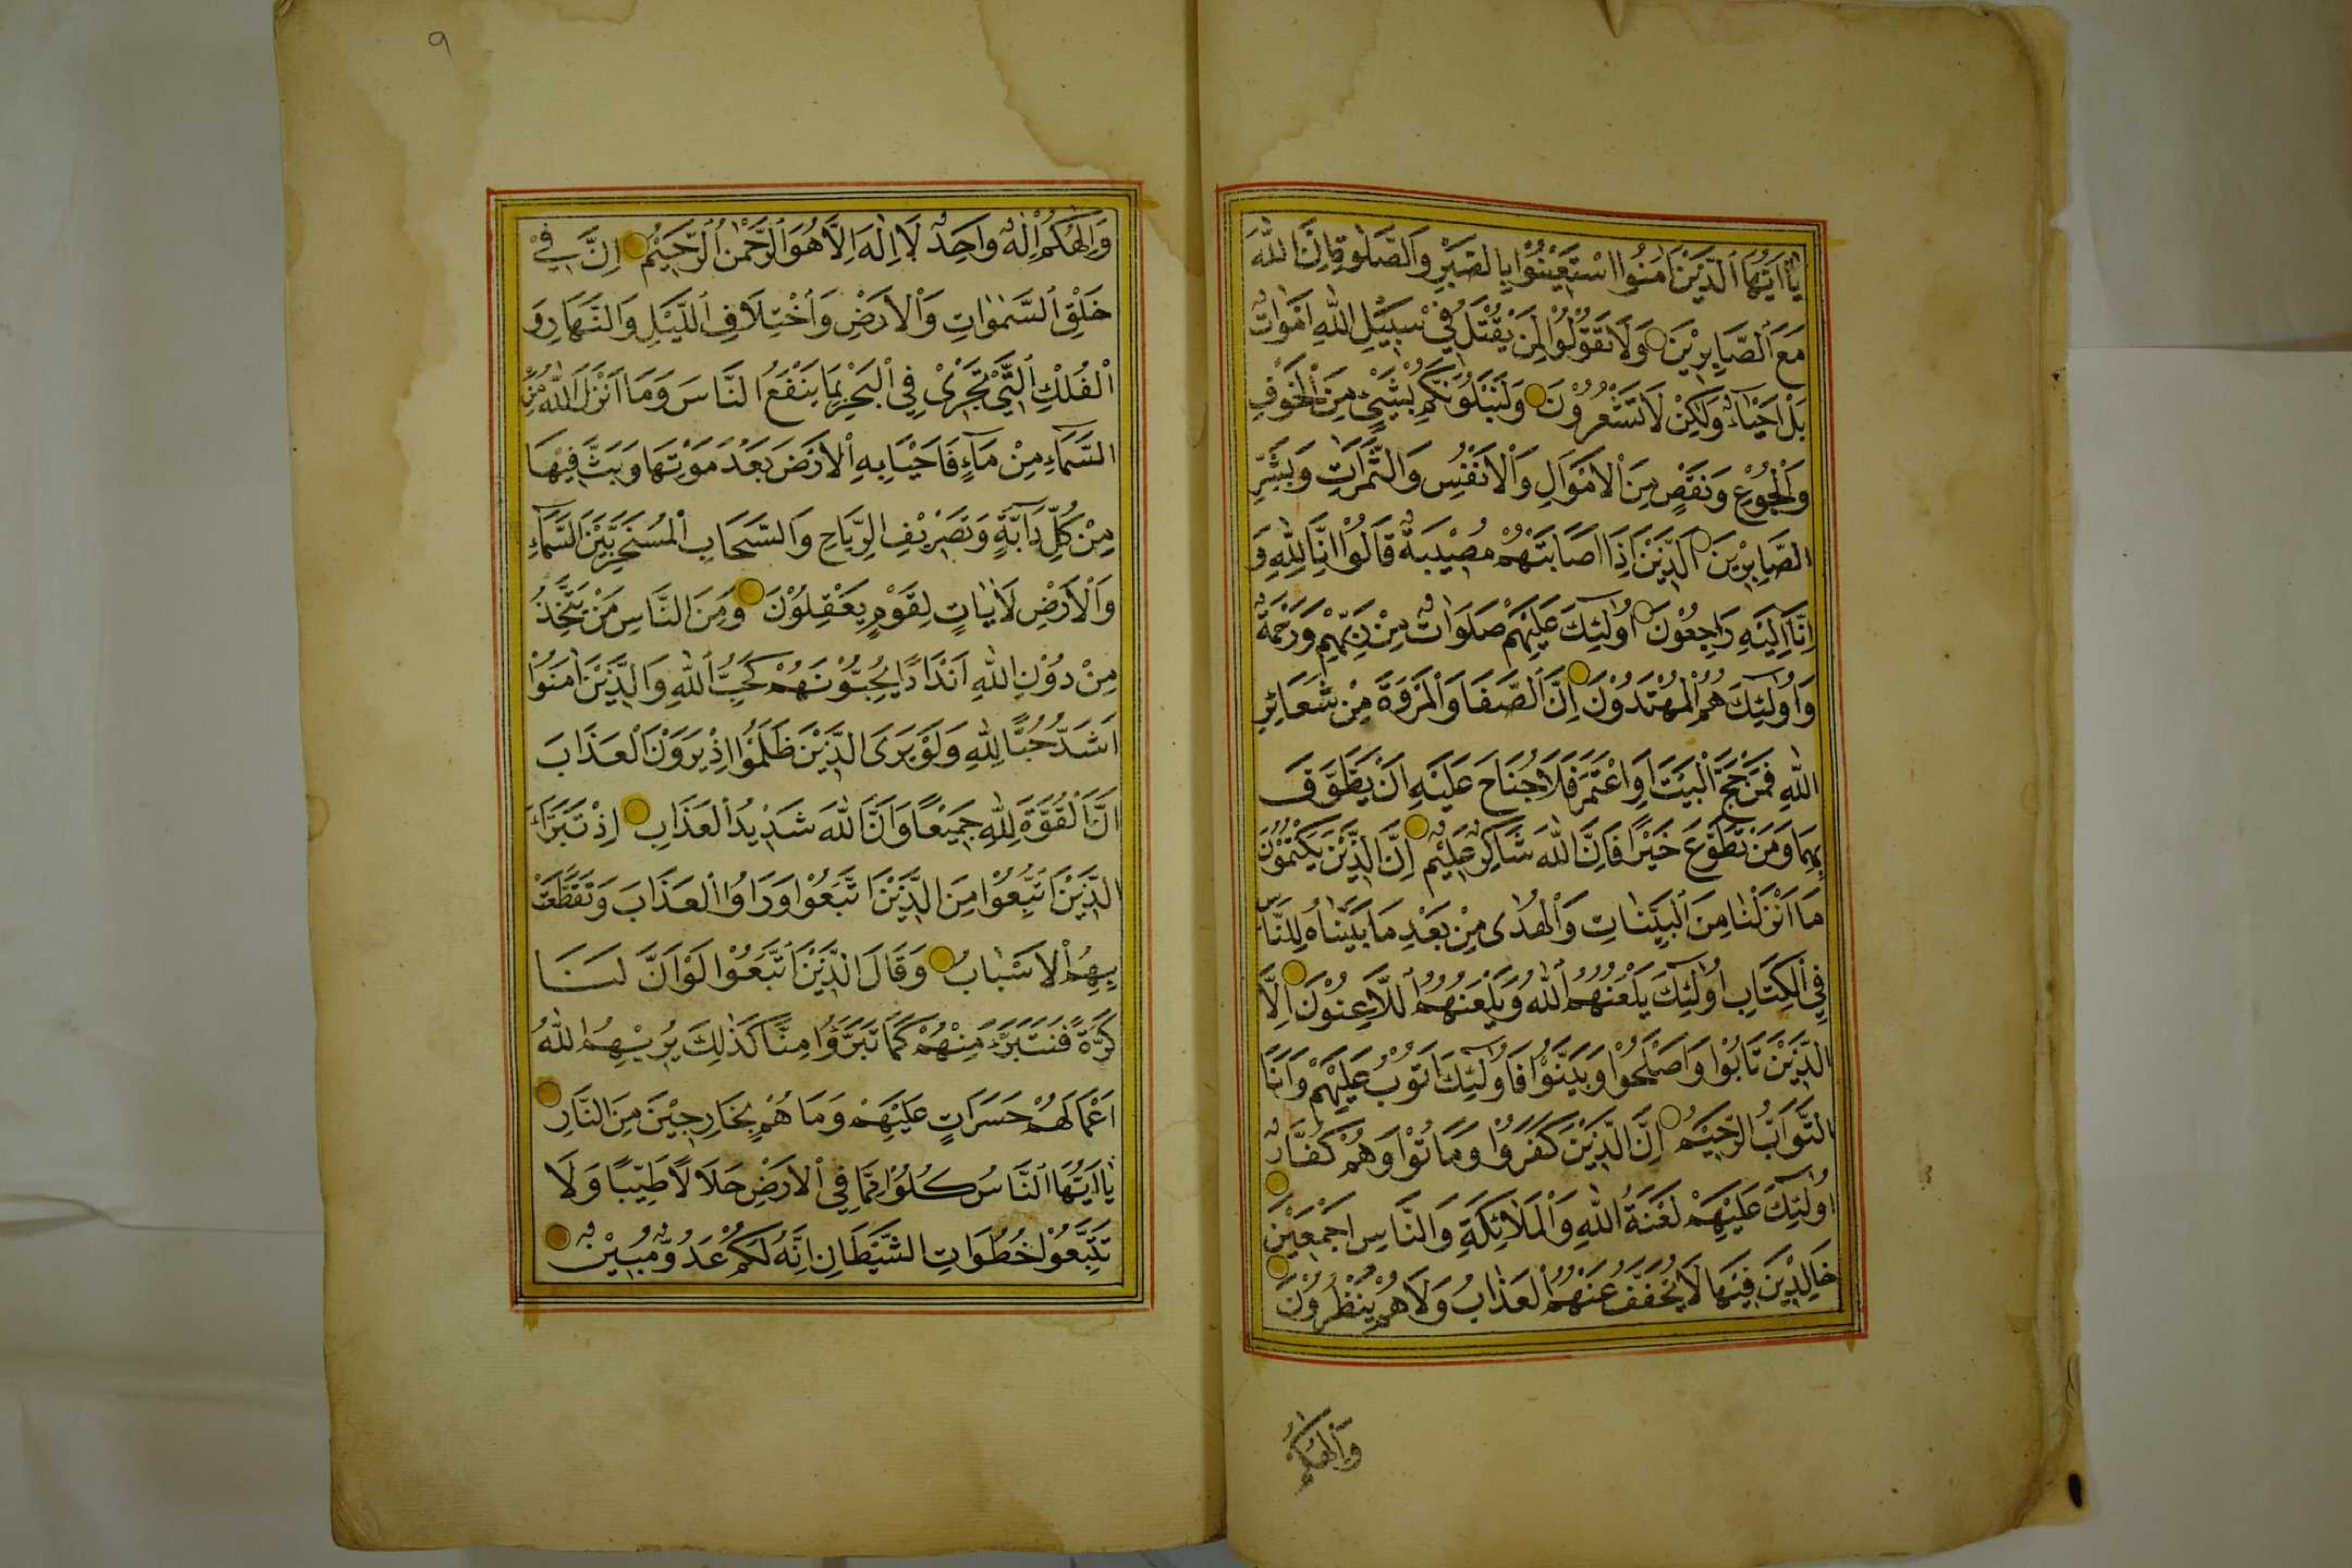 يَا اَيُّهَا الَّذِيْنَ اٰمَنُوا اسْتَعِيْنُوْا بِالصَّبْرِ وَالصَّلٰوةِ اِنَّ اللّٰهَ
مَعَ الصَّابِرِيْنَ وَلَا تَقُوْلُوْا لِمَنْ يُقْتَلُ فِيْ سَبِيْلِ اللّٰهِ اَمْوَاتٌ
بَلْ اَحْيَاءٌ وَلٰكِنْ لَا تَشْعُرُوْنَ وَلَنَبْلُوَنَّكُمْ بِشَيْءٍ مِنَ الْخَوْفِ
وَالْجُوْعِ وَنَقْصٍ مِنَ الْاَمْوَالِ وَالْاَنْفُسِ وَالثَّمَرَاتِ وَبَشِّرِ
الصَّابِرِيْنَ الَّذِيْنَ اِذَا اَصَابَتْهُمْ مُصِيْبَةٌ قَالُوْا اِنَّا لِلّٰهِ وَ
اِنَّا اِلَيْهِ رَاجِعُوْنَ اُولٰئِكَ عَلَيْهِمْ صَلَوَاتٌ مِنْ رَبِّهِمْ وَرَحْمَةٌ
وَاُولٰئِكَ هُمُ الْمُهْتَدُوْنَ اِنَّ الصَّفَا وَالْمَرْوَةَ مِنْ شَعَائِرِ
اللّٰهِ فَمَنْ حَجَّ الْبَيْتَ اَوِ اعْتَمَرَ فَلَا جُنَاحَ عَلَيْهِ اَنْ يَطَّوَّفَ
بِهِمَا وَمَنْ تَطَوَّعَ خَيْرًا فَاِنَّ اللّٰهَ شَاكِرٌ عَلِيْمٌ اِنَّ الَّذِيْنَ يَكْتُمُوْنَ
مَا اَنْزَلْنَا مِنَ الْبَيِّنَاتِ وَالْهُدٰى مِنْ بَعْدِ مَا بَيَّنَّاهُ لِلنَّاسِ
فِي الْكِتَابِ اُولٰئِكَ يَلْعَنُهُمُ اللّٰهُ وَيَلْعَنُهُمُ اللَّاعِنُوْنَ اِلَّا
الَّذِيْنَ تَابُوْا وَاَصْلَحُوْا وَبَيَّنُوْا فَاُولٰئِكَ اَتُوْبُ عَلَيْهِمْ وَاَنَا
التَّوَّابُ الرَّحِيْمُ اِنَّ الَّذِيْنَ كَفَرُوْا وَمَاتُوْا وَهُمْ كُفَّارٌ
اُولٰئِكَ عَلَيْهِمْ لَعْنَةُ اللّٰهِ وَالْمَلَائِكَةِ وَالنَّاسِ اَجْمَعِيْنَ
خَالِدِيْنَ فِيْهَا لَا يُخَفَّفُ عَنْهُمُ الْعَذَابُ وَلَا هُمْ يُنْظَرُوْنَ
وَاِلٰهُكُمْ
٩
وَاِلٰهُكُمْ اِلٰهٌ وَاحِدٌ لَا اِلٰهَ اِلَّا هُوَ الرَّحْمٰنُ الرَّحِيْمُ اِنَّ فِيْ
خَلْقِ السَّمٰوَاتِ وَالْاَرْضِ وَاخْتِلَافِ اللَّيْلِ وَالنَّهَارِ وَ
الْفُلْكِ الَّتِيْ تَجْرِيْ فِي الْبَحْرِ بِمَا يَنْفَعُ النَّاسَ وَمَا اَنْزَلَ اللّٰهُ مِنَ
السَّمَاءِ مِنْ مَاءٍ فَاَحْيَا بِهِ الْاَرْضَ بَعْدَ مَوْتِهَا وَبَثَّ فِيْهَا
مِنْ كُلِّ دَابَّةٍ وَتَصْرِيْفِ الرِّيَاحِ وَالسَّحَابِ الْمُسَخَّرِ بَيْنَ السَّمَاءِ
وَالْاَرْضِ لَاٰيَاتٍ لِقَوْمٍ يَعْقِلُوْنَ وَمِنَ النَّاسِ مَنْ يَتَّخِذُ
مِنْ دُوْنِ اللّٰهِ اَنْدَادًا يُحِبُّوْنَهُمْ كَحُبِّ اللّٰهِ وَالَّذِيْنَ اٰمَنُوْا
اَشَدُّ حُبًّا لِلّٰهِ وَلَوْ يَرَى الَّذِيْنَ ظَلَمُوْا اِذْ يَرَوْنَ الْعَذَابَ
اَنَّ الْقُوَّةَ لِلّٰهِ جَمِيْعًا وَاَنَّ اللّٰهَ شَدِيْدُ الْعَذَابِ اِذْ تَبَرَّاَ
الَّذِيْنَ اتُّبِعُوْا مِنَ الَّذِيْنَ اتَّبَعُوْا وَرَاَوُا الْعَذَابَ وَتَقَطَّعَتْ
بِهِمُ الْاَسْبَابُ وَقَالَ الَّذِيْنَ اتَّبَعُوْا لَوْ اَنَّ لَنَا
كَرَّةً فَنَتَبَرَّءَ مِنْهُمْ كَمَا تَبَرَّؤُا مِنَّا كَذٰلِكَ يُرِيْهِمُ اللّٰهُ
اَعْمَالَهُمْ حَسَرَاتٍ عَلَيْهِمْ وَمَا هُمْ بِخَارِجِيْنَ مِنَ النَّارِ
يَا اَيُّهَا النَّاسُ كُلُوْا مِمَّا فِي الْاَرْضِ حَلَالًا طَيِّبًا وَلَا
تَتَّبِعُوْا خُطُوَاتِ الشَّيْطَانِ اِنَّهُ لَكُمْ عَدُوٌّ مُبِيْنٌ